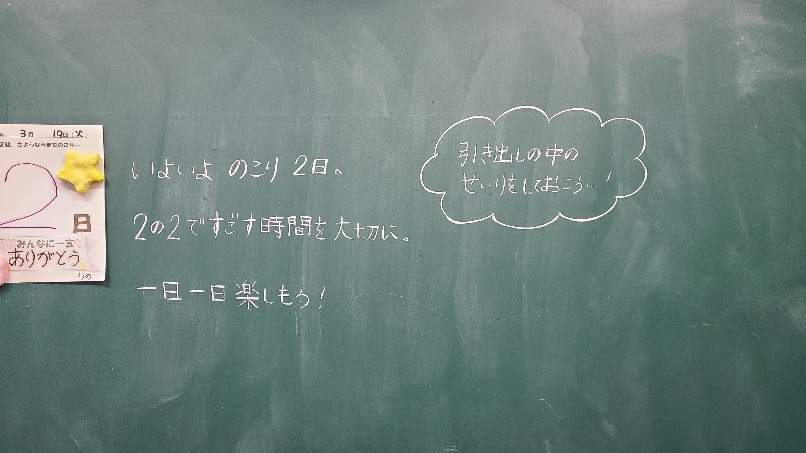 3月 19日(火)
さようならまでのこり…
2
日
みんなに一言
ありがとう
いよいよ のこり 2日。
2の2ですごす時間を大切に。
一日一日楽しもう!
引き出しの中の
せいりをしておこう…!